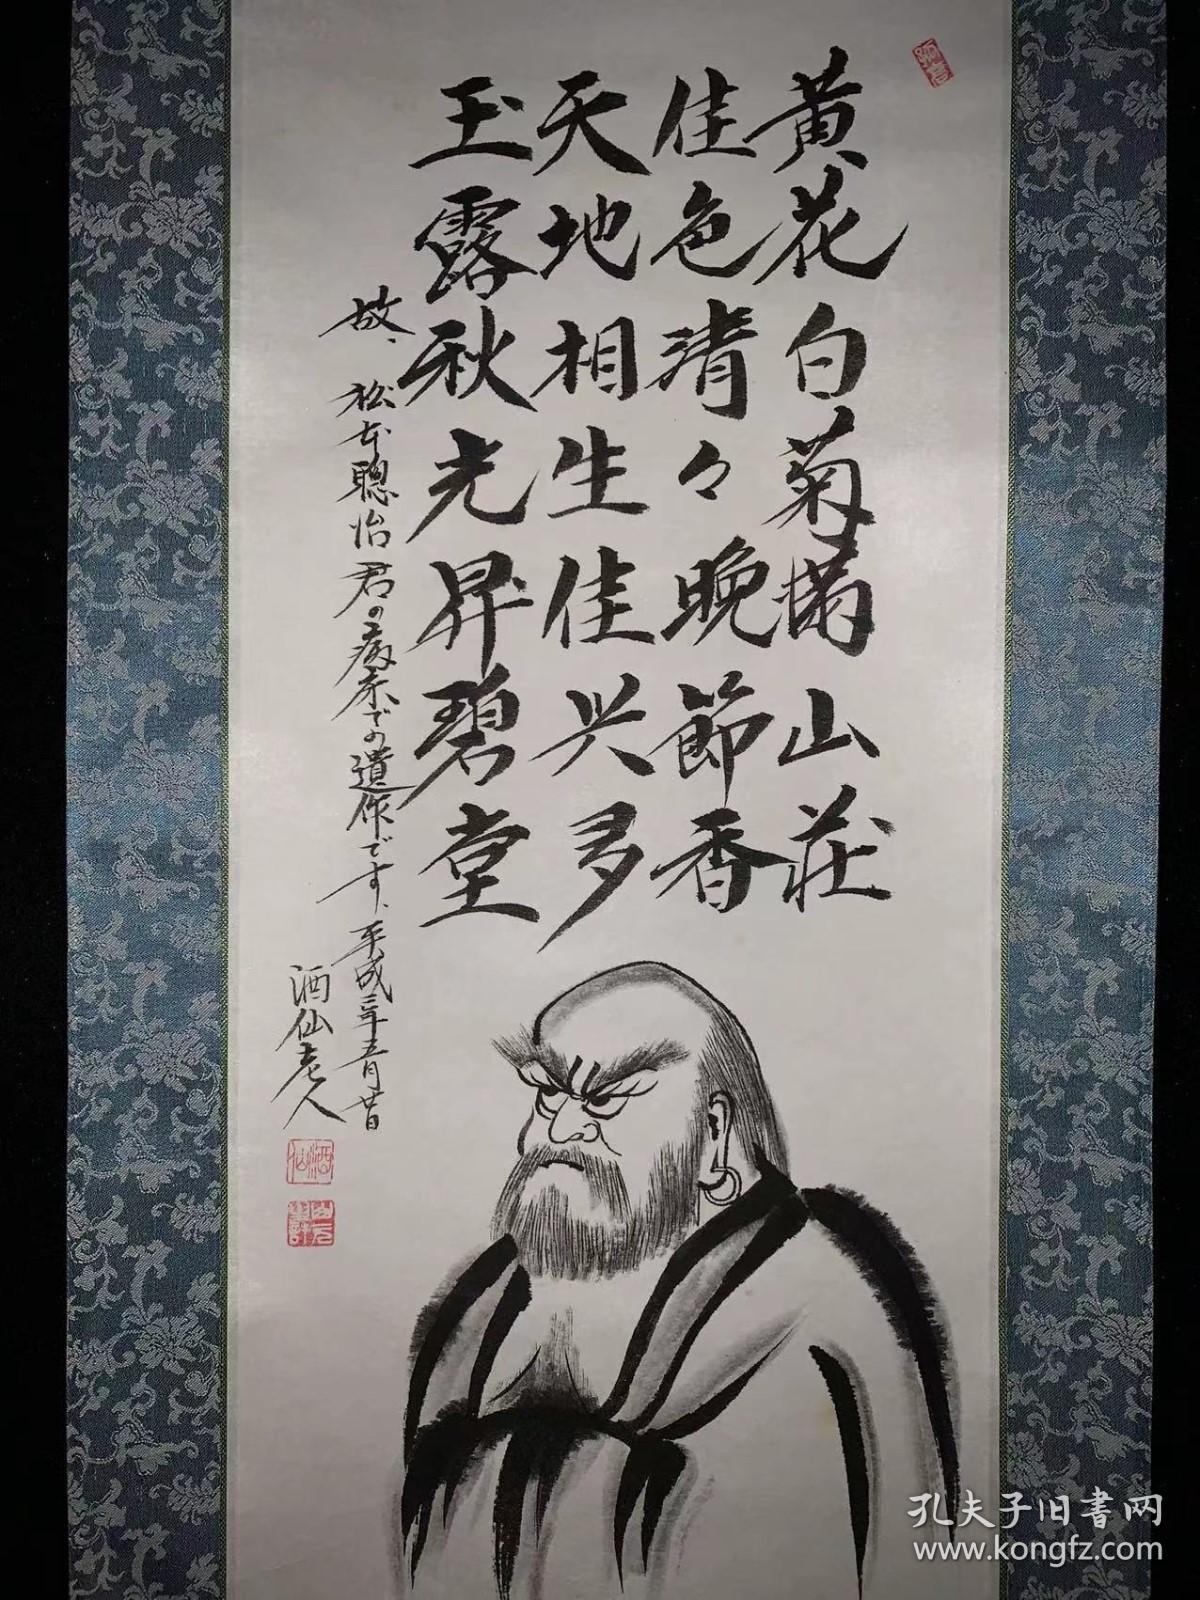 黄花白菊満山莊
佳色清々晩節香
天地相生佳兴多
玉露秋光昇碧堂
故、松本聰治君の病床での遺作です、平成三年五月廿日
酒仙老人
酒仙
孔夫子旧書网
www.kongfz.com